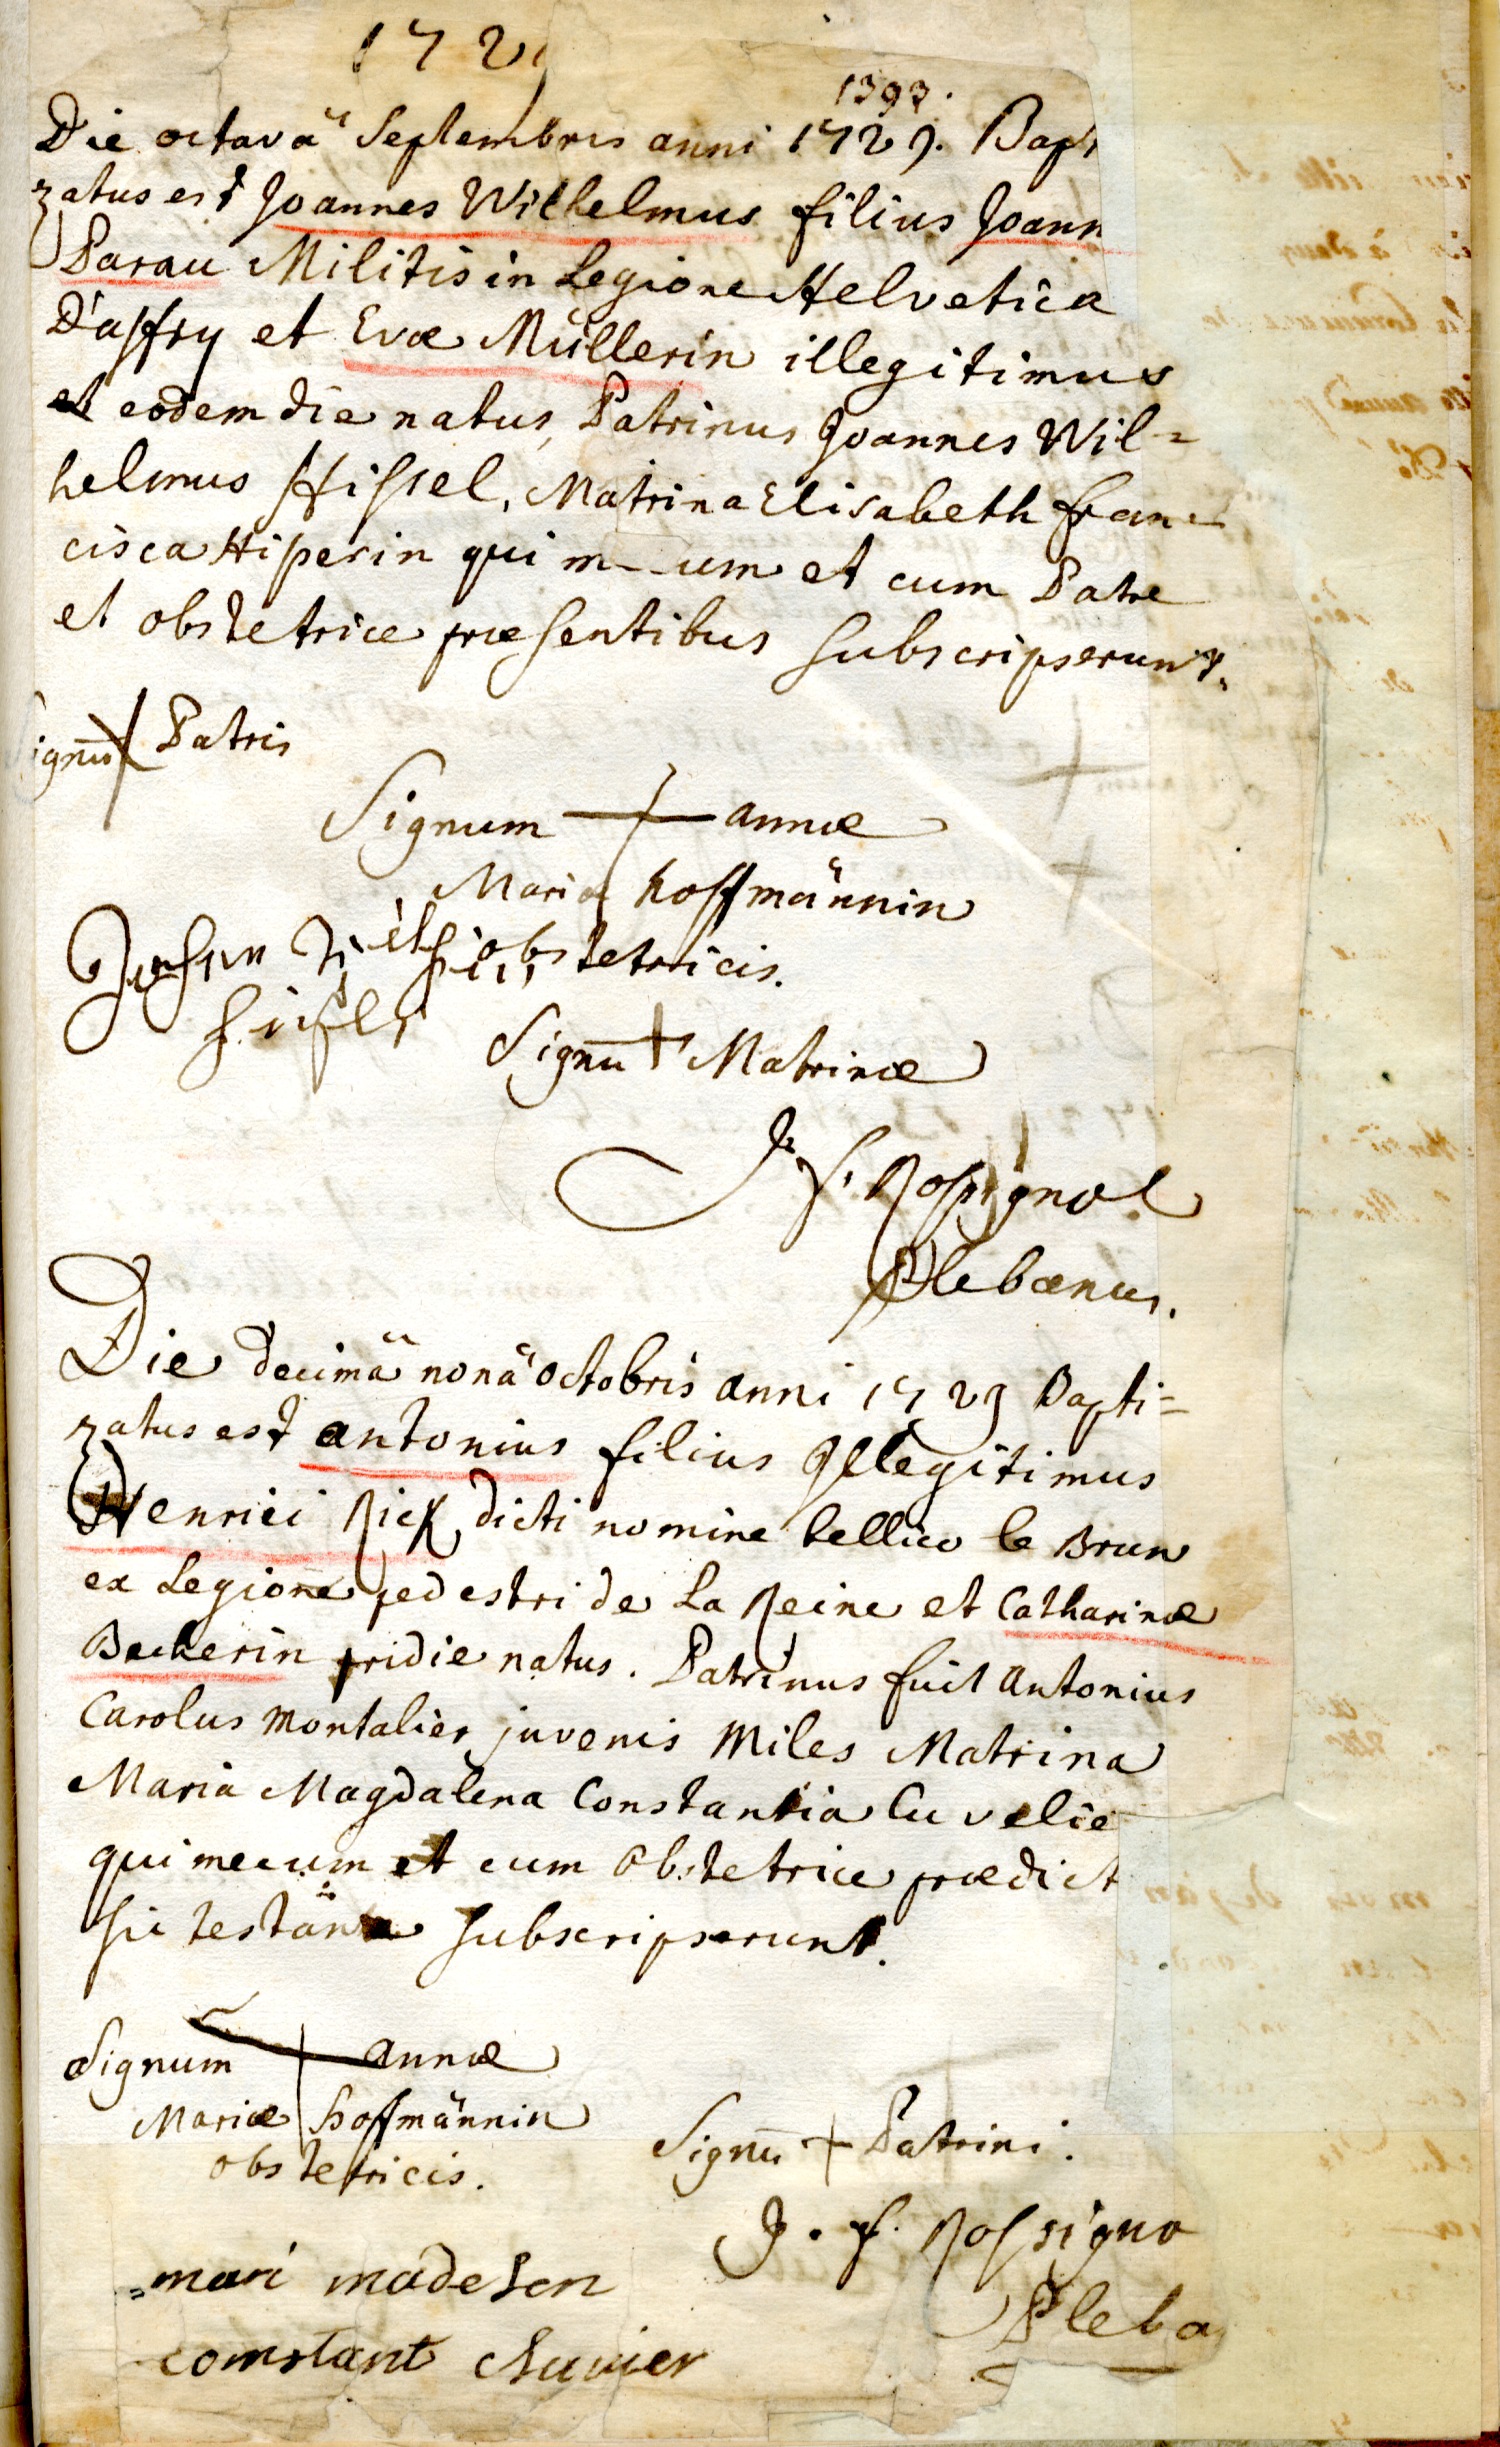 172
1393.
Die octavâ Septembris anni 1729. Bapt
zatus est Joannes Wilhelmus filius Joann
Parau Militis in Legione Helvetica
D'affry et Evæ Müllerin illegitimus
et eodem die natus, Patrinus Joannes Wil=
helmus Hissel, Matrina Elisabeth fran=
cisca Hiperin qui m um et cum Patre
et obstetrice præsentibus subscripserunt.
ignū Patris
Signum annæ
Mariæ hoffmännin
obstetricis.
Signū Matrinæ
J. f. Rossignol
Plebanus.
Die decimâ nonâ octobris anni 1729 Bapti=
zatus est antonius filius Illegitimus
Henrici Rick dicti nomine bellico le Brun
ex Legione pedestri de La Reine et Catharinæ
Beckerin pridie natus. Patrinus fuit antonius
Carolus Montalier juvenis Miles Matrina
Maria Magdalena Constantia Cuvelie
qui mecum et cum obstetrice prædict
sic subscripserunt.
Signum annæ
Mariæ hoffmännin
obstetricis.
Signū Patrini.
J. f. Rossigno
Pleba
mari madelen
constant chuvier